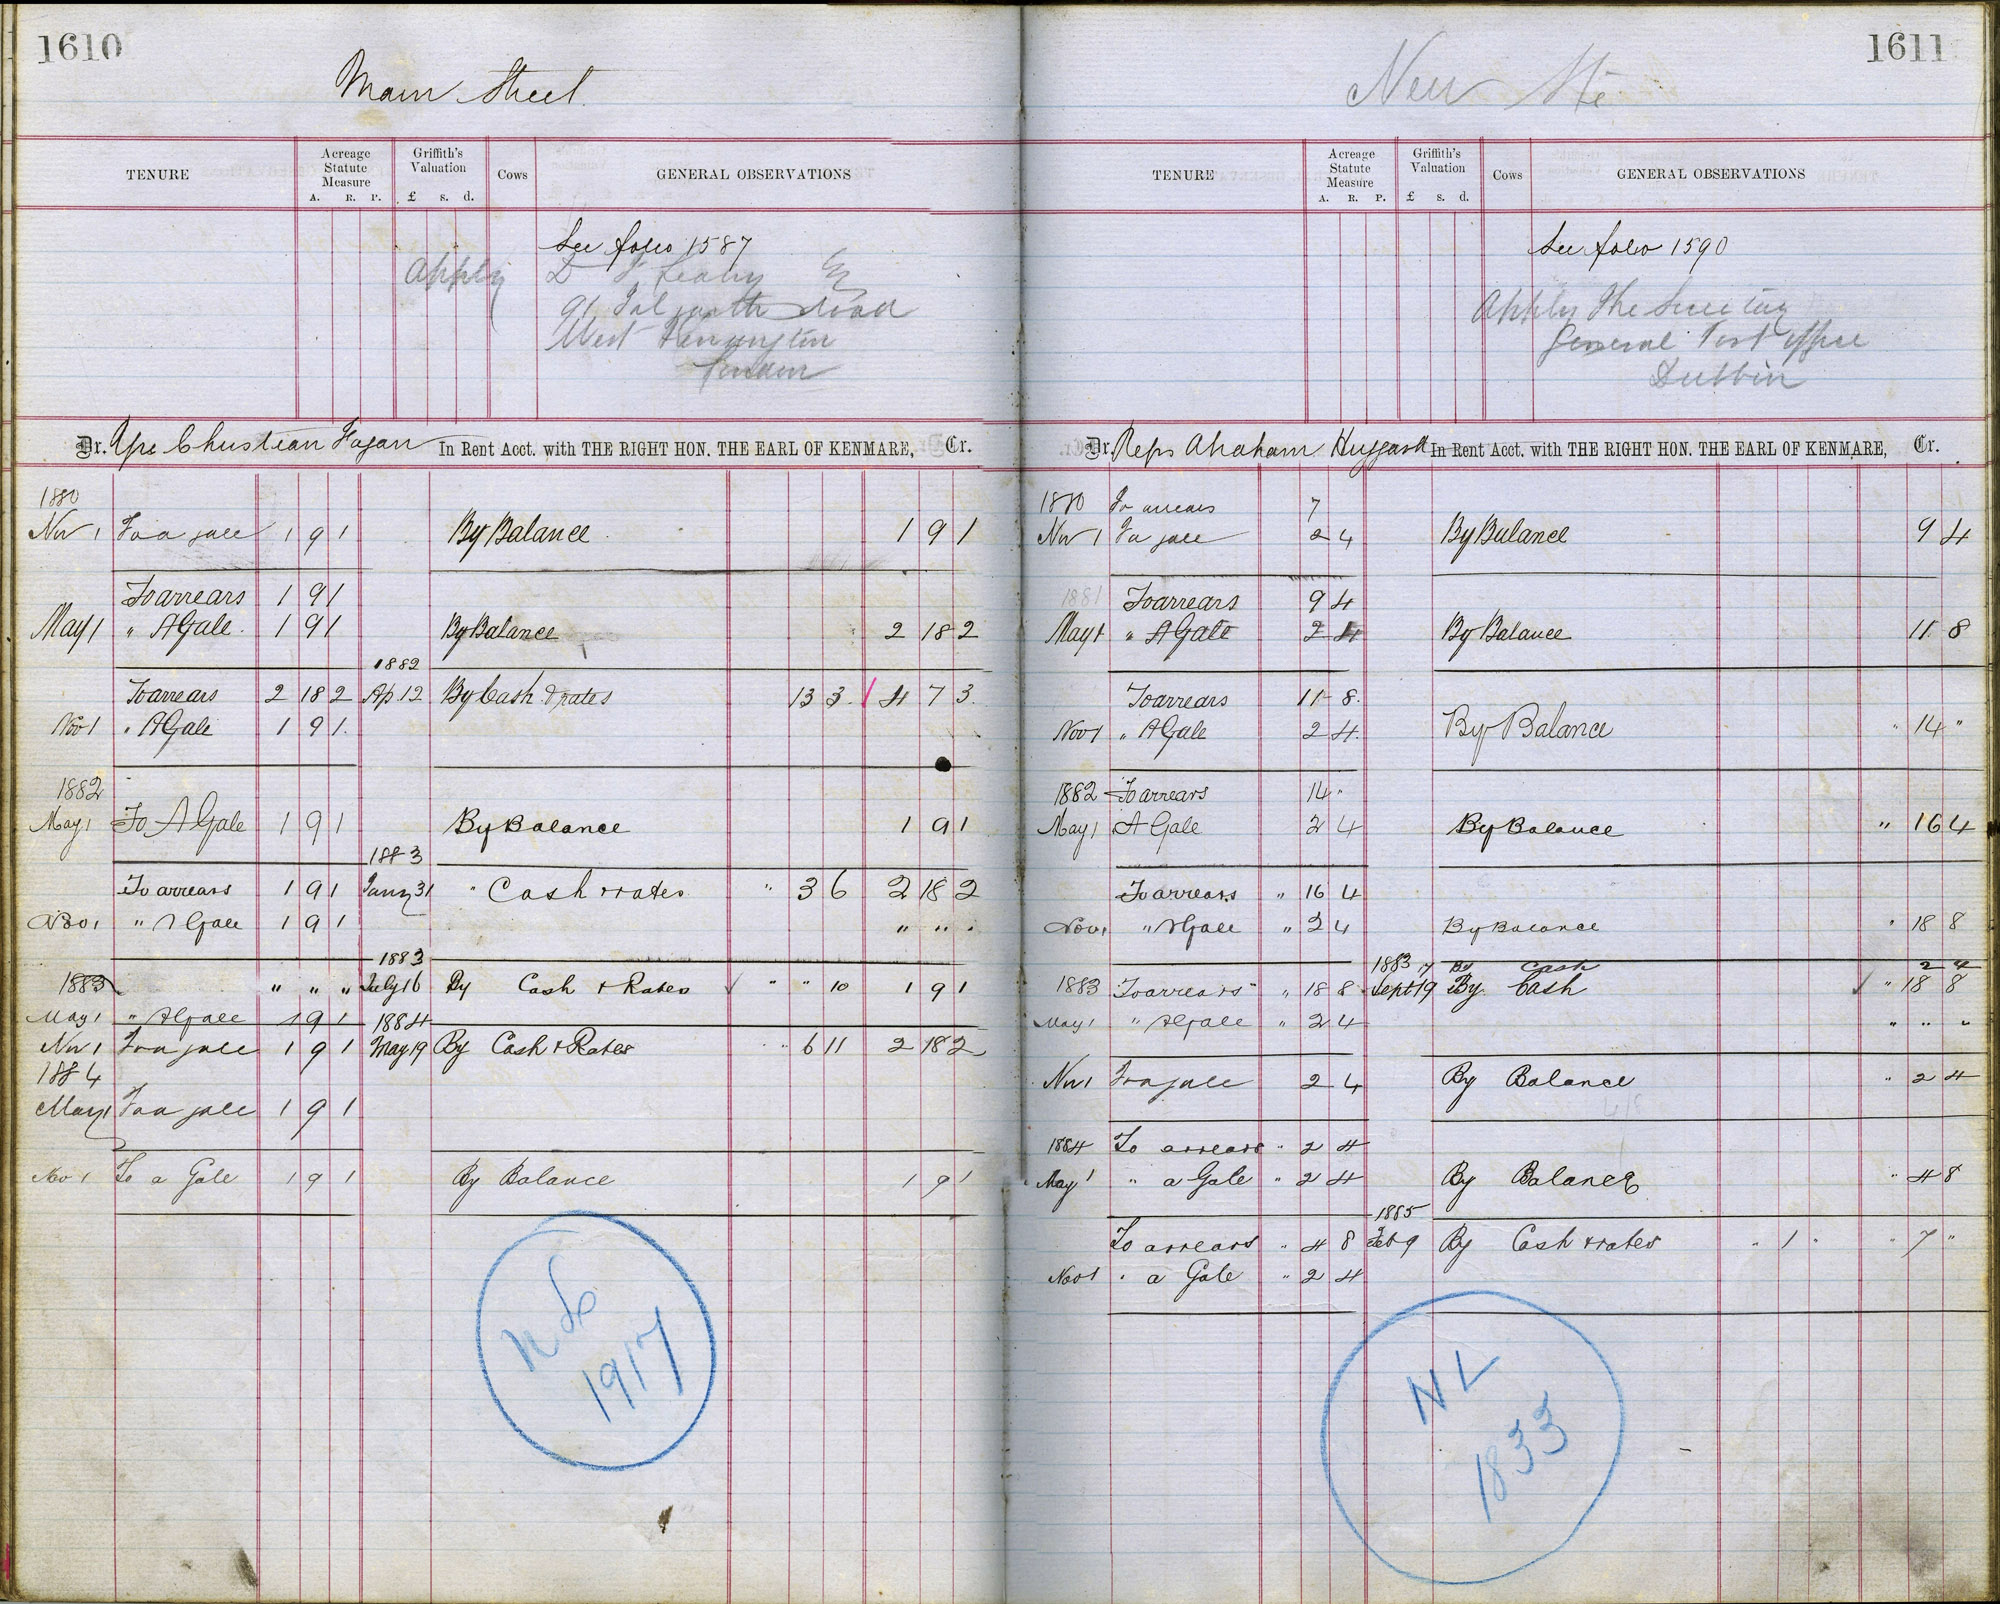 1610
Main Street
TENURE
Acreage Statute Measure
A. R. P.
Griffith's Valuation
£ s. d.
Cows
GENERAL OBSERVATIONS
See folio 1587
Apply D Leahy
91 road
West Kensington
London
Dr. Christian Fagan In Rent Acct. with THE RIGHT HON. THE EARL OF KENMARE, Cr.
1880
Nov 1 To a gale 1 9 1 By Balance 1 9 1
To arrears 1 9 1
May 1 " A Gale 1 9 1 By Balance 2 18 2
1882
To arrears 2 18 2 Ap 12 By Cash & rates 13 3 4 7 3
Nov 1 " A Gale 1 9 1
1882
May 1 To A Gale 1 9 1 By Balance 1 9 1
1883
To arrears 1 9 1 Jany 31 " Cash & rates " 3 6 2 18 2
Nov 1 " A Gale 1 9 1 " " "
1883
1883 " " " July 16 By Cash & Rates " " 10 1 9 1
May 1 " A Gale 1 9 1
1884
Nov 1 To a gale 1 9 1 May 19 By Cash & Rates " 6 11 2 18 2
1884
May 1 To a gale 1 9 1
Nov 1 To a Gale 1 9 1 By Balance 1 9 1
1917
1611
New St
TENURE
Acreage Statute Measure
A. R. P.
Griffith's Valuation
£ s. d.
Cows
GENERAL OBSERVATIONS
See folio 1590
Apply The Secretary
General Post Office
Dublin
Dr. Reps Abraham Huggard In Rent Acct. with THE RIGHT HON. THE EARL OF KENMARE, Cr.
1880 To arrears 7
Nov 1 To a gale 2 4 By Balance 9 4
1881 To arrears 9 4
May 1 " A Gale 2 4 By Balance 11 8
To arrears 11 8
Nov 1 " A Gale 2 4 By Balance " 14 "
1882 To arrears 14 "
May 1 A Gale 2 4 By Balance " 16 4
To arrears " 16 4
Nov 1 " A Gale " 2 4 By Balance " 18 8
1883 17 By Cash 2 4
1883 To arrears " 18 8 Sept 19 By Cash " 18 8
May 1 " A Gale " 2 4 " " "
Nov 1 To a gale 2 4 By Balance " 2 4
1884 To arrears " 2 4
May 1 " a Gale " 2 4 By Balance " 4 8
1885
To arrears " 4 8 Feb 9 By Cash & rates " 1 " " 7 "
Nov 1 " a Gale " 2 4
NL
1833